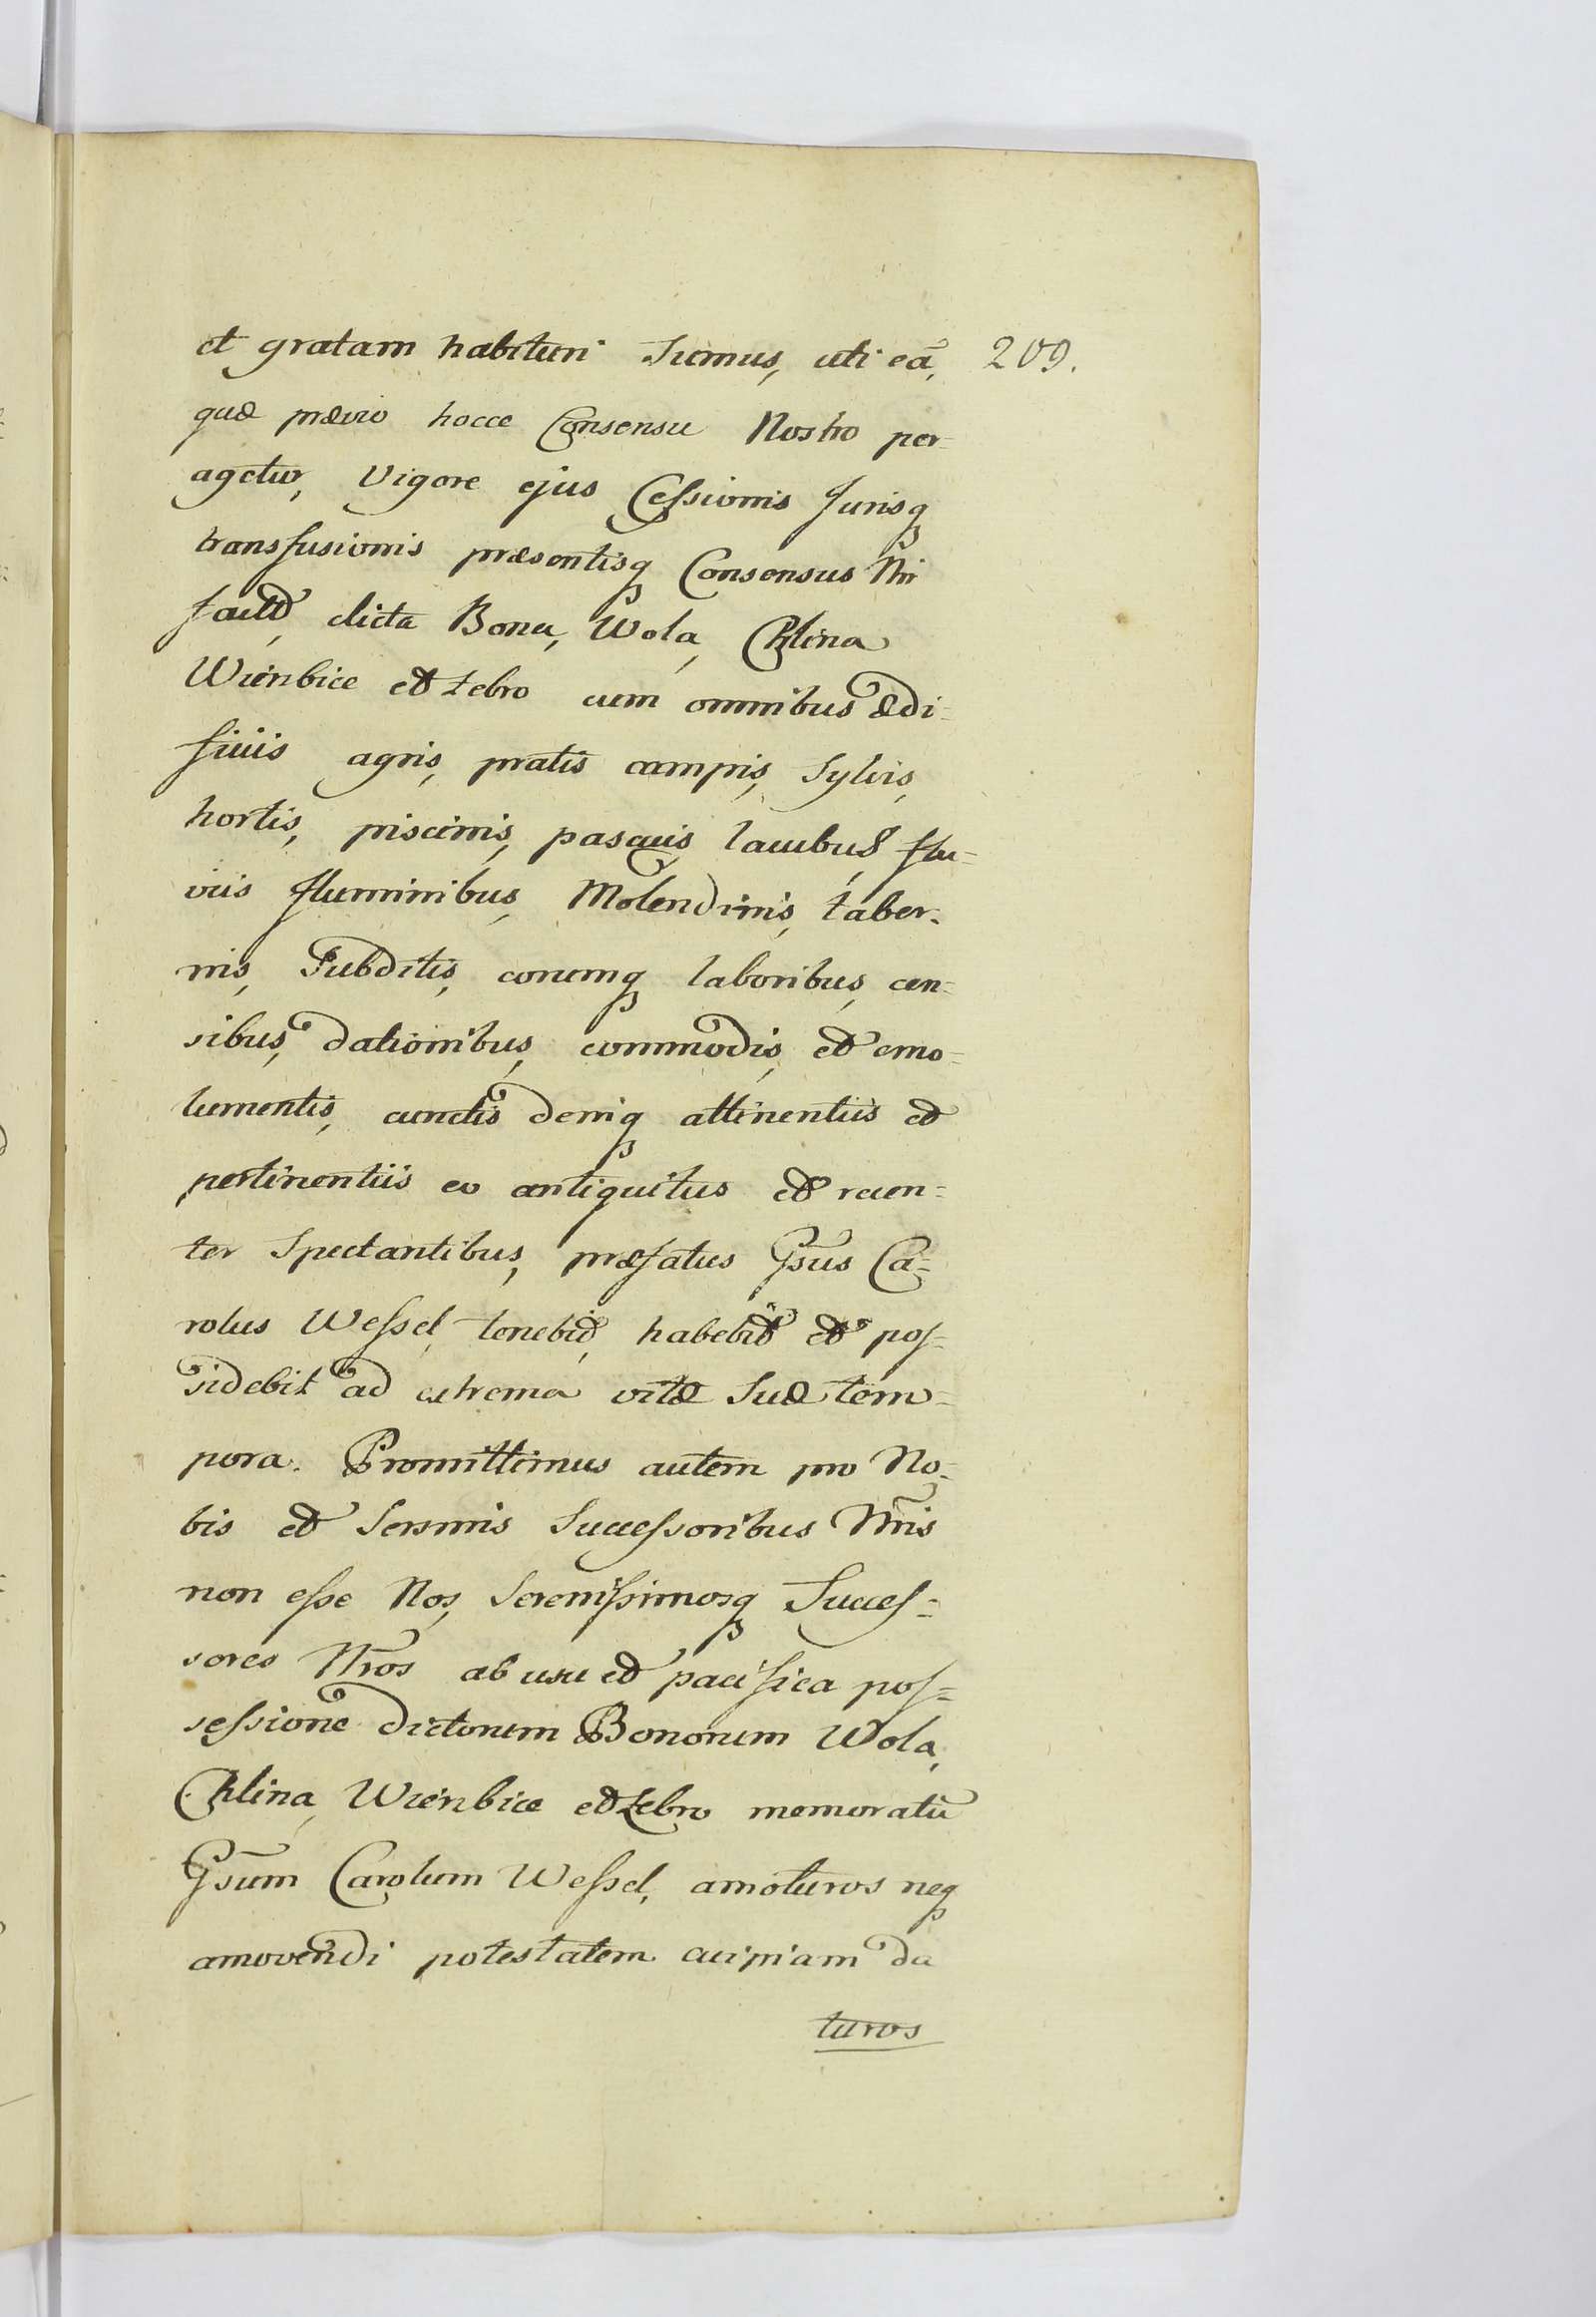 et gratam habituri Sumus, uti eā, 209.
quæ prævio hocce Consensu Nostro per=
agetur, Vigore ejus Cessionis Jurisq
transfusionis præsentisq Consensus Nri
dicta Bona, Wola, Chlina
Wierzbice et Zebro cum omnibus ædi=
ficiis agris, pratis campis, Sylvis,
hortis, piscinis, pascuis, lacubus, flu=
viis fluminibus, Molendinis, taber=
nis, Subditis, eorumq laboribus, cen=
sibus, dationibus, commodis, et emo=
lumentis, cunctis deniq attinentiis et
pertinentiis eo antiquitus et recen=
ter Spectantibus, præfatus Gsus Ca=
rolus Wessel, tenebit, habebit et pos=
sidebit ad extrema vitæ Suæ tem=
pora. Promittimus autem pro No=
bis et Sersmis Successoribus Nris
non esse Nos, Serenissimosq Succes=
sores Nros ab usu et pacifica pos=
sessione dictorum Bonorum Wola,
Chlina, Wierzbice et Zebro memoratū
Gsum Carolum Wessel, amoturos neq
amovendi potestatem cuipiam da
turos